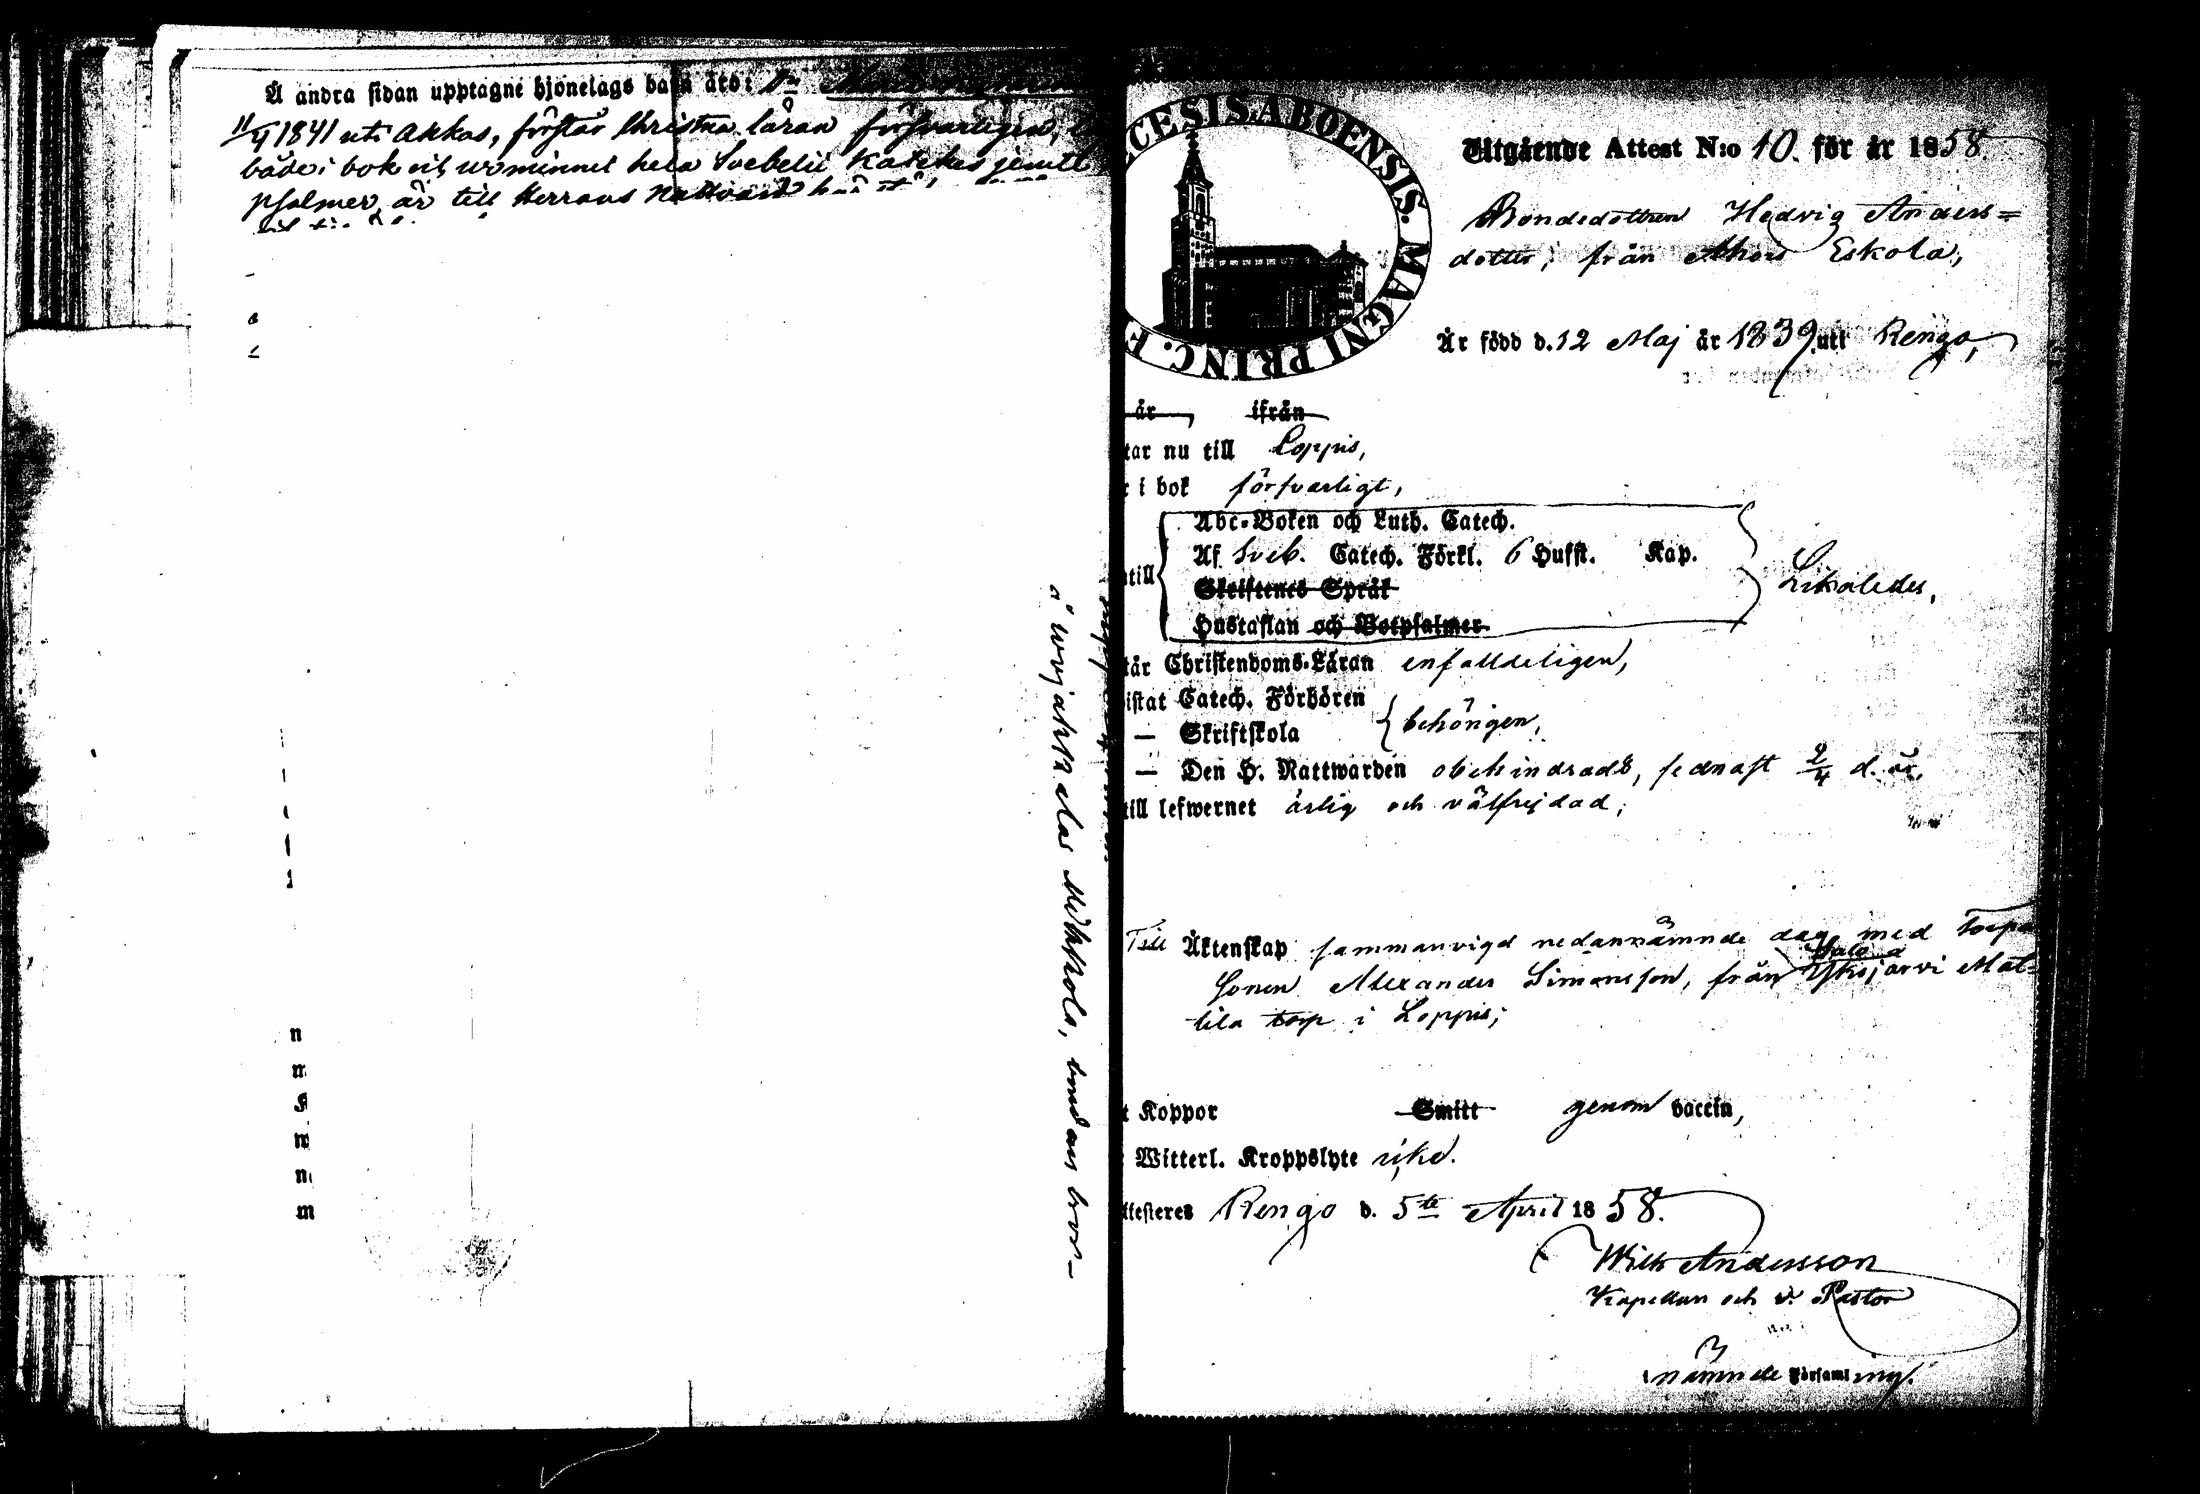 Å andra sidan upptagne hjonelags barn äro: 1:o
11/4 1841 uti Akkas, förstår Christna läran försvarligen,
både i bok och ur minnet hela Svebelii Kateches jemte
psalmer, är till Herrans Nattvard
n
m
F
w
n
m
å Urjakkalas Mikkola, bondans bror-
CESIS ABOENSIS. MAGNI PRINC. F
Utgående Attest N:o 10. för år 1858.
Bondedottren Hedvig Anders=
dotter, från Ahois Eskola,
Är född d. 12 Maj år 1839 uti Rengo,
år ifrån
tar nu till Loppis,
r i bok försvarligt,
Abc-Boken och Luth. Catech.
Af Sveb. Catech. Förkl. 6 Hufst. Kap.
ntill
Skriftenes Språk
Likaledes,
Hustaflan och Botpsalmer
tår Christendoms-Läran enfalldeligen,
istat Catech. Förhören
— Skriftskola
behörigen,
— Den H. Nattwarden obehindradt, sednast 2/4 d. år.
till lefwernet ärlig och välfrejdad;
Till Äktenskap sammanvigd nedannämnde dag med Torpa
Salo
sonen Alexander Simonsson, från Yksjärvi Mat=
tila torp i Loppis;
t Koppor Smitt genom vaccin,
Witterl. Kroppslyte
ttesteres Rengo d. 5te April 1858.
Wilh Andersson
Kapellan och v. Pastor
nämnde Församling.